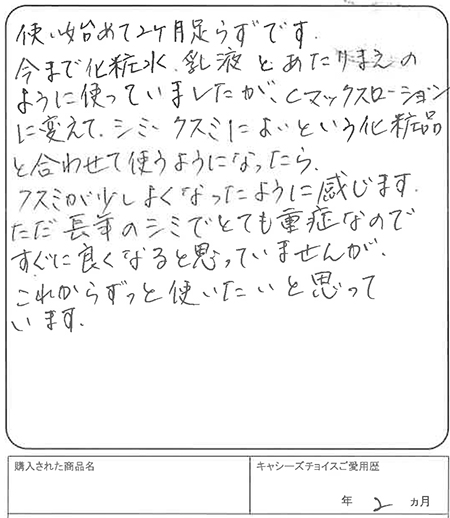 使い始めて2ヶ月足らずです.
今まで化粧水.乳液とあたりまえの
ように使っていましたが、Cマックスローション
に変えて.シミ・クスミによいという化粧品
と合わせて使うようになったら.
クスミが少しよくなったように感じます.
ただ長年のシミでとても重症なので
すぐに良くなると思っていませんが.
これからずっと使いたいと思って
います.
購入された商品名
キャシーズチョイスご愛用歴
年 2 ヵ月